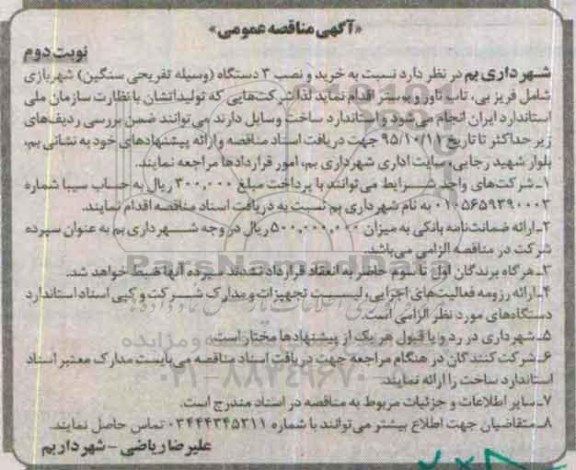 «آگهی مناقصه عمومی»
نوبت دوم
شهرداری بم در نظر دارد نسبت به خرید و نصب ۳ دستگاه (وسیله تفریحی سنگین) شهربازی
شامل فریز بی، تاب تاور و بوستر اقدام نماید لذا شرکت‌هایی که تولیداتشان با نظارت سازمان ملی
استاندارد ایران انجام می‌شود و استاندارد ساخت وسایل دارند می‌توانند ضمن بررسی ردیف‌های
زیر حداکثر تا تاریخ ۹۵/۱۰/۱۱ جهت دریافت اسناد مناقصه و ارائه پیشنهادهای خود به نشانی بم،
بلوار شهید رجایی، سایت اداری شهرداری بم، امور قراردادها مراجعه نمایند.
۱ـ شرکت‌های واجد شرایط می‌توانند با پرداخت مبلغ ۳۰۰,۰۰۰ ریال به حساب سیبا شماره
۰۱۰۵۶۵۹۳۹۰۰۰۳ به نام شهرداری بم نسبت به دریافت اسناد مناقصه اقدام نمایند.
۲ـ ارائه ضمانت‌نامه بانکی به میزان ۵۰۰,۰۰۰,۰۰۰ ریال در وجه شهرداری بم به عنوان سپرده
شرکت در مناقصه الزامی می‌باشد.
۳ـ هرگاه برندگان اول تا سوم حاضر به انعقاد قرارداد نشدند سپرده آنها ضبط خواهد شد.
۴ـ ارائه رزومه فعالیت‌های اجرایی، لیست تجهیزات و مدارک شرکت و کپی اسناد استاندارد
دستگاه‌های مورد نظر الزامی است.
۵ـ شهرداری در رد و یا قبول هر یک از پیشنهادها مختار است.
۶ـ شرکت کنندگان در هنگام مراجعه جهت دریافت اسناد مناقصه می‌بایست مدارک معتبر اسناد
استاندارد ساخت را ارائه نمایند.
۷ـ سایر اطلاعات و جزئیات مربوط به مناقصه در اسناد مندرج است.
۸ـ متقاضیان جهت اطلاع بیشتر می‌توانند با شماره ۰۳۴۴۴۳۴۵۲۱۱ تماس حاصل نمایند.
علیرضا ریاضی - شهردار بم
ParsNamadData
۰۲۱-۸۸۳۴۹۶۷۰